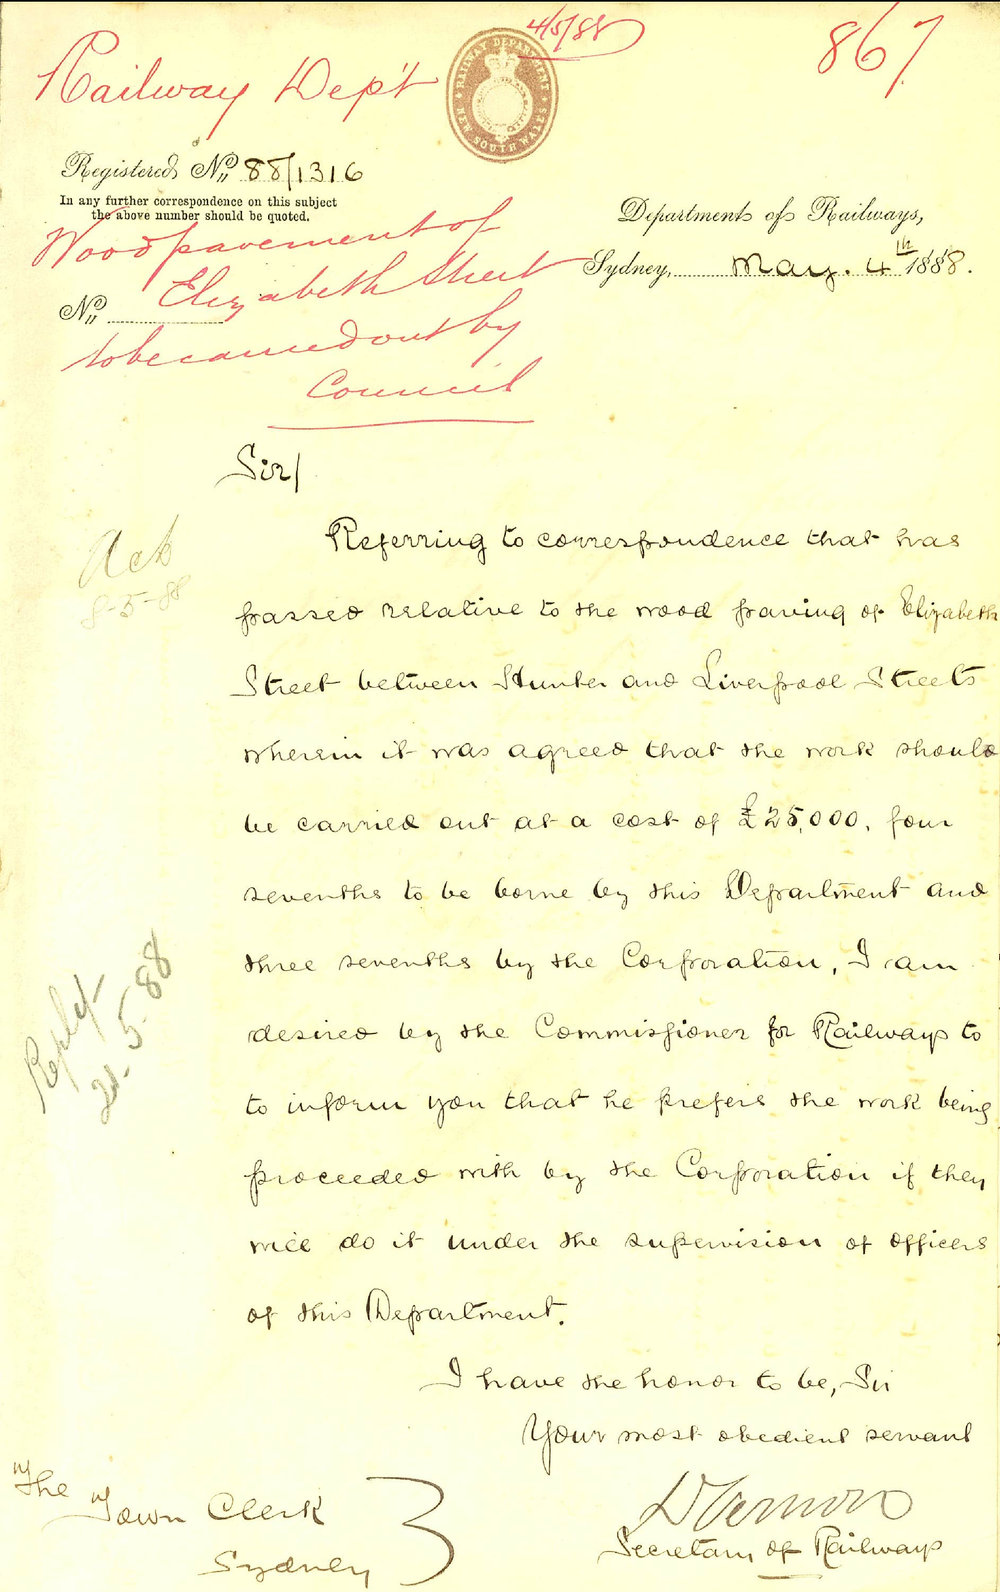 4/5/88
867
Railway Dep't
RAILWAY DEPARTMENT
NEW SOUTH WALES
Registered No 88/1316
In any further correspondence on this subject
the above number should be quoted.
Department of Railways,
Sydney, May. 4th 1888.
Wood pavement of
Elizabeth Street
No
to be carried out by
Council
Sir/
Ack
8-5-88
Referring to correspondence that has
passed relative to the wood paving of Elizabeth
Street between Hunter and Liverpool Streets
wherein it was agreed that the work should
be carried out at a cost of £25,000, four
sevenths to be borne by this Department and
three sevenths by the Corporation, I am
desired by the Commissioner for Railways to
to inform you that he prefers the work being
proceeded with by the Corporation if they
will do it under the supervision of officers
of this Department.
Reply
5-88
I have the honor to be, Sir
Your most obedient servant
D Vernon
Secretary of Railways
The
Town Clerk
Sydney